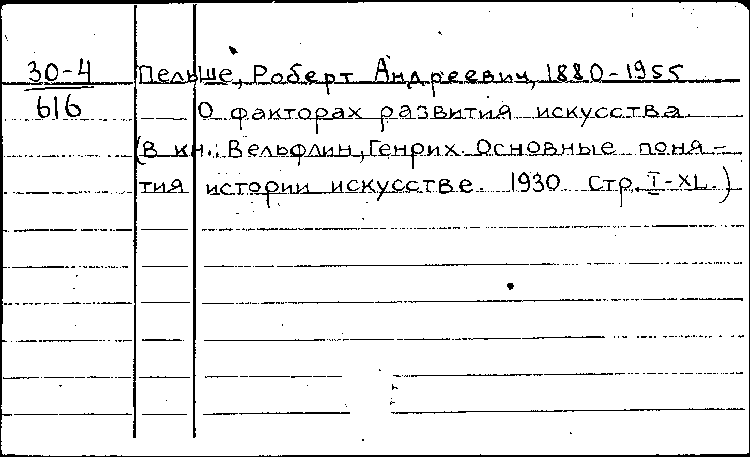 30-4 Пельше, Роберт Андреевич, 1880-1955
616 О факторах развития искусства.
(в кн.: Вельфлин, Генрих. Основные поня-
тия истории искусстве. 1930 стр. I-XL.)